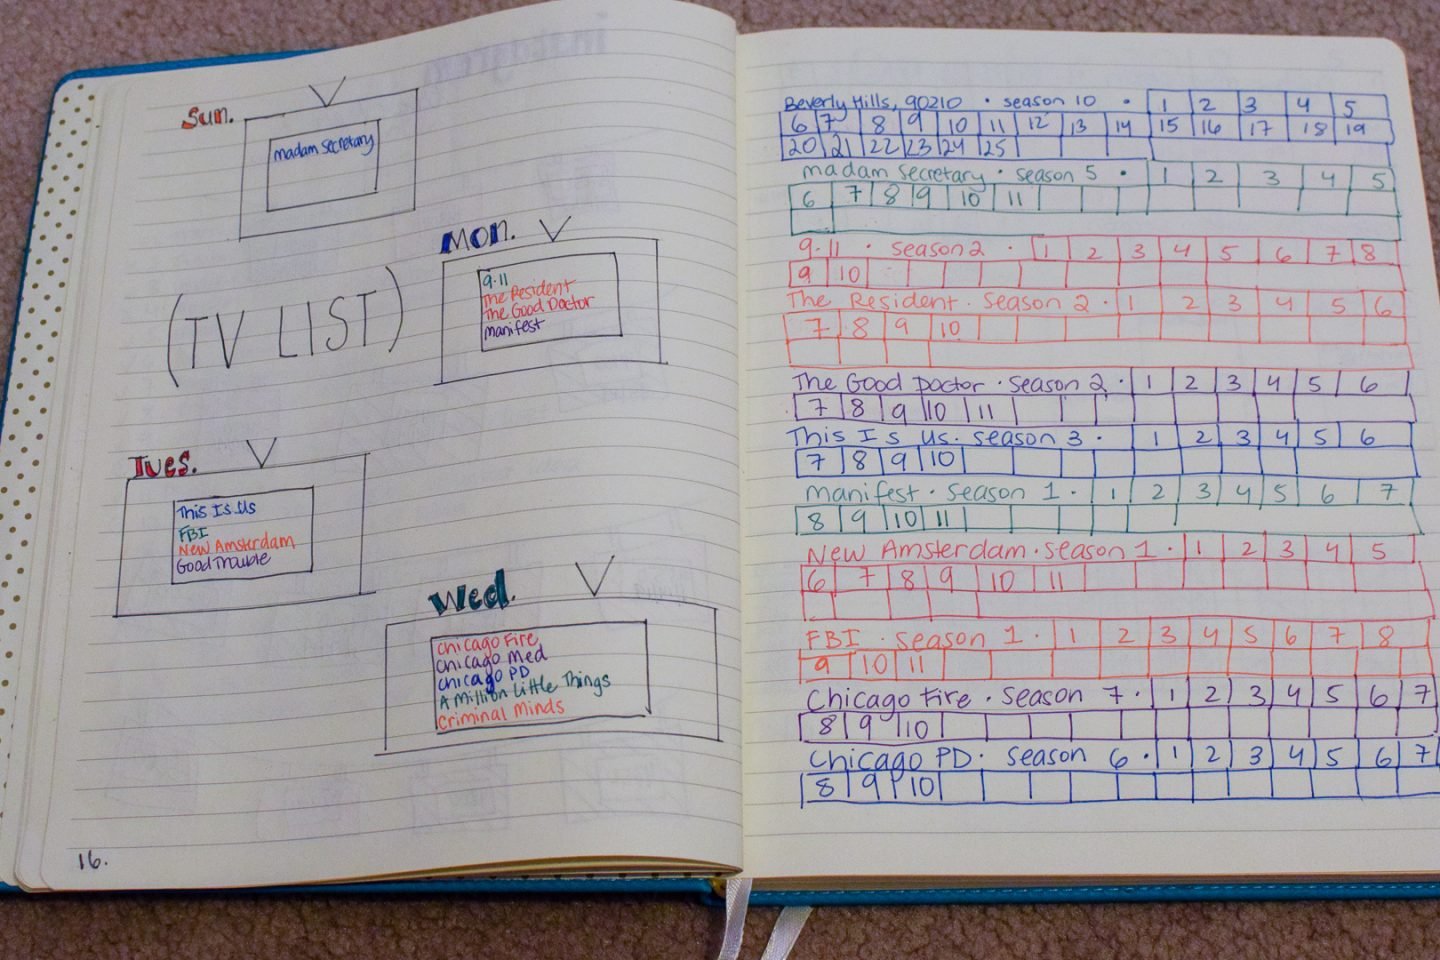 Sun.
madam secretary
Mon.
9-11
The Resident
The Good Doctor
manifest
(TV LIST)
Tues.
This Is Us
FBI
New Amsterdam
Good Trouble
Wed.
Chicago Fire
Chicago Med
Chicago PD
A Million Little Things
Criminal Minds
16.
Beverly Hills, 90210 · season 10 · 1 2 3 4 5
6 7 8 9 10 11 12 13 14 15 16 17 18 19
20 21 22 23 24 25
madam secretary · season 5 · 1 2 3 4 5
6 7 8 9 10 11
9-11 · season 2 · 1 2 3 4 5 6 7 8
9 10
The Resident · season 2 · 1 2 3 4 5 6
7 8 9 10
The Good Doctor · season 2 · 1 2 3 4 5 6
7 8 9 10 11
This Is Us · season 3 · 1 2 3 4 5 6
7 8 9 10
manifest · season 1 · 1 2 3 4 5 6 7
8 9 10 11
New Amsterdam · season 1 · 1 2 3 4 5
6 7 8 9 10 11
FBI · season 1 · 1 2 3 4 5 6 7 8
9 10 11
Chicago Fire · season 7 · 1 2 3 4 5 6 7
8 9 10
Chicago PD · season 6 · 1 2 3 4 5 6 7
8 9 10